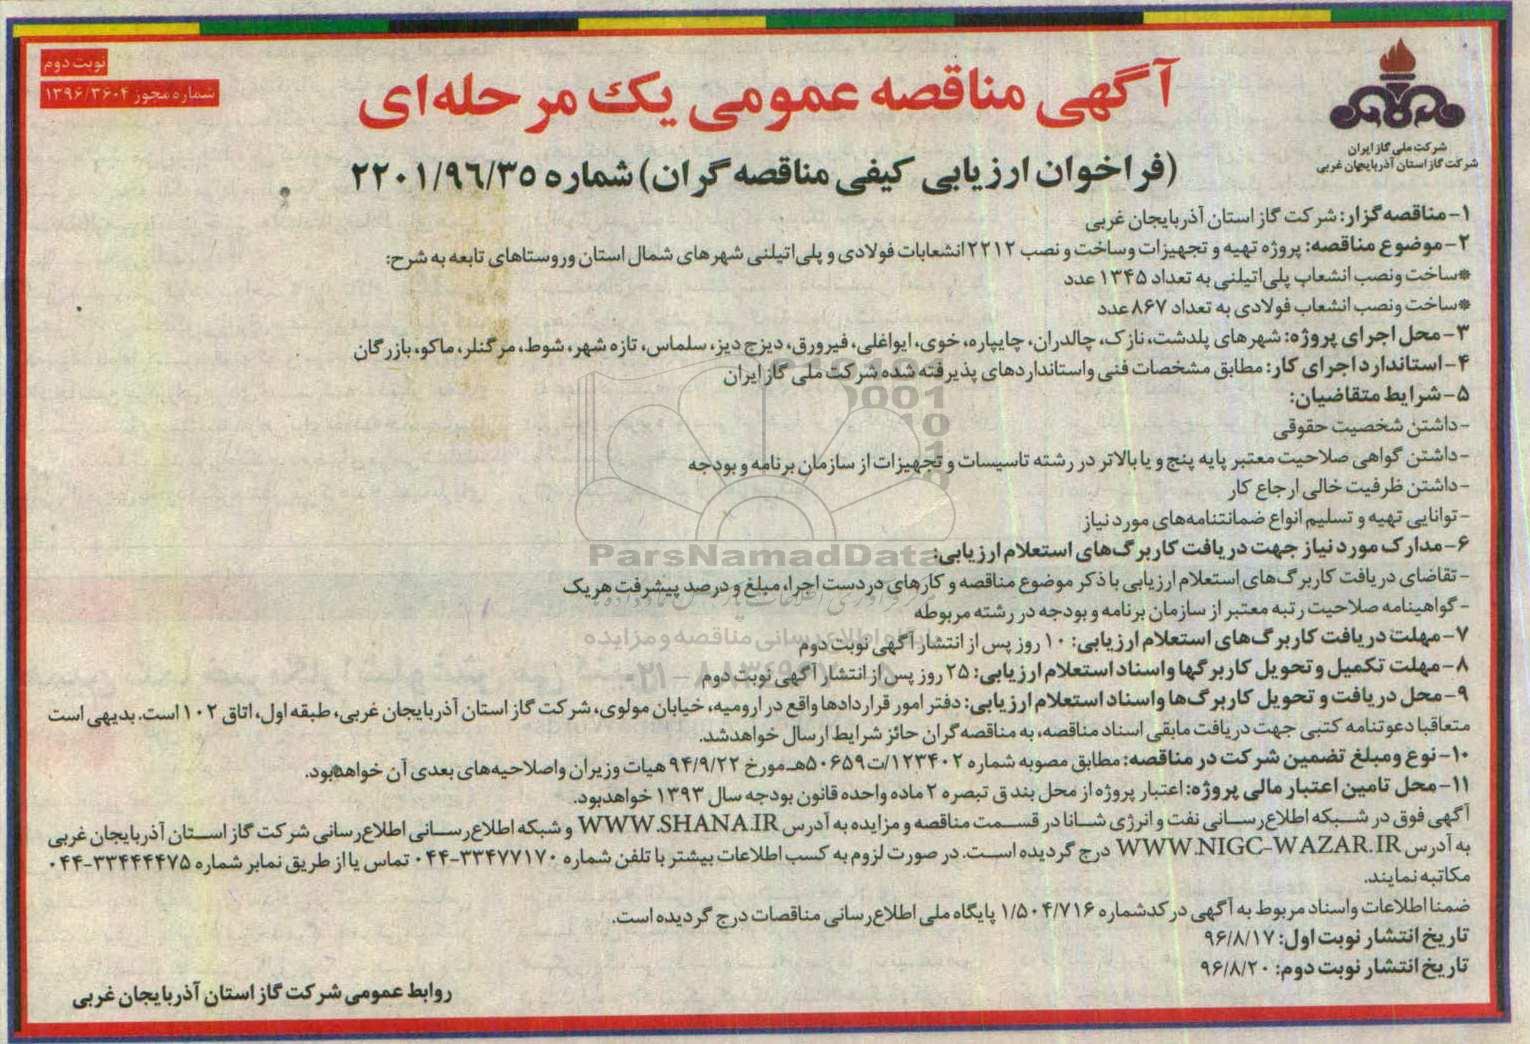 نوبت دوم
شماره مجوز ۱۳۹۶/۳۶۰۴
شرکت ملی گاز ایران
شرکت گاز استان آذربایجان غربی
آگهی مناقصه عمومی یک مرحله‌ای
(فراخوان ارزیابی کیفی مناقصه گران) شماره ۲۲۰۱/۹۶/۳۵
۱- مناقصه‌گزار: شرکت گاز استان آذربایجان غربی
۲- موضوع مناقصه: پروژه تهیه و تجهیزات وساخت و نصب ۲۲۱۲ انشعابات فولادی و پلی‌اتیلنی شهرهای شمال استان وروستاهای تابعه به شرح:
*ساخت ونصب انشعاب پلی‌اتیلنی به تعداد ۱۳۴۵ عدد
*ساخت ونصب انشعاب فولادی به تعداد ۸۶۷ عدد
۳- محل اجرای پروژه: شهرهای پلدشت، نازک، چالدران، چایپاره، خوی، ایواغلی، فیرورق، دیزج دیز، سلماس، تازه شهر، شوط، مرگنلر، ماکو، بازرگان
۴- استاندارد اجرای کار: مطابق مشخصات فنی واستانداردهای پذیرفته شده شرکت ملی گاز ایران
۵- شرایط متقاضیان:
- داشتن شخصیت حقوقی
- داشتن گواهی صلاحیت معتبر پایه پنج و یا بالاتر در رشته تاسیسات و تجهیزات از سازمان برنامه و بودجه
- داشتن ظرفیت خالی ارجاع کار
- توانایی تهیه و تسلیم انواع ضمانتنامه‌های مورد نیاز
۶- مدارک مورد نیاز جهت دریافت کاربرگ‌های استعلام ارزیابی:
- تقاضای دریافت کاربرگ‌های استعلام ارزیابی با ذکر موضوع مناقصه و کارهای دردست اجرا، مبلغ و درصد پیشرفت هریک
- گواهینامه صلاحیت رتبه معتبر از سازمان برنامه و بودجه در رشته مربوطه
۷- مهلت دریافت کاربرگ‌های استعلام ارزیابی: ۱۰ روز پس از انتشار آگهی نوبت دوم
۸- مهلت تکمیل و تحویل کاربرگها واسناد استعلام ارزیابی: ۲۵ روز پس از انتشار آگهی نوبت دوم
۹- محل دریافت و تحویل کاربرگ‌ها واسناد استعلام ارزیابی: دفتر امور قراردادها واقع در ارومیه، خیابان مولوی، شرکت گاز استان آذربایجان غربی، طبقه اول، اتاق ۱۰۲ است. بدیهی است
متعاقبا دعوتنامه کتبی جهت دریافت مابقی اسناد مناقصه، به مناقصه‌گران حائز شرایط ارسال خواهدشد.
۱۰- نوع ومبلغ تضمین شرکت در مناقصه: مطابق مصوبه شماره ۱۲۳۴۰۲/ت۵۰۶۵۹هـ مورخ ۹۴/۹/۲۲ هیات وزیران واصلاحیه‌های بعدی آن خواهدبود.
۱۱- محل تامین اعتبار مالی پروژه: اعتبار پروژه از محل بند ق تبصره ۲ ماده واحده قانون بودجه سال ۱۳۹۳ خواهدبود.
آگهی فوق در شبکه اطلاع‌رسانی نفت و انرژی شانا در قسمت مناقصه و مزایده به آدرس WWW.SHANA.IR و شبکه اطلاع‌رسانی اطلاع‌رسانی شرکت گاز استان آذربایجان غربی
به آدرس WWW.NIGC-WAZAR.IR درج گردیده است. در صورت لزوم به کسب اطلاعات بیشتر با تلفن شماره ۳۳۴۷۷۱۷۰-۰۴۴ تماس یا از طریق نمابر شماره ۳۳۴۴۴۴۷۵-۰۴۴
مکاتبه نمایند.
ضمنا اطلاعات واسناد مربوط به آگهی در کدشماره ۱/۵۰۴/۷۱۶ پایگاه ملی اطلاع‌رسانی مناقصات درج گردیده است.
تاریخ انتشار نوبت اول: ۹۶/۸/۱۷
تاریخ انتشار نوبت دوم: ۹۶/۸/۲۰
روابط عمومی شرکت گاز استان آذربایجان غربی
ParsNamadData